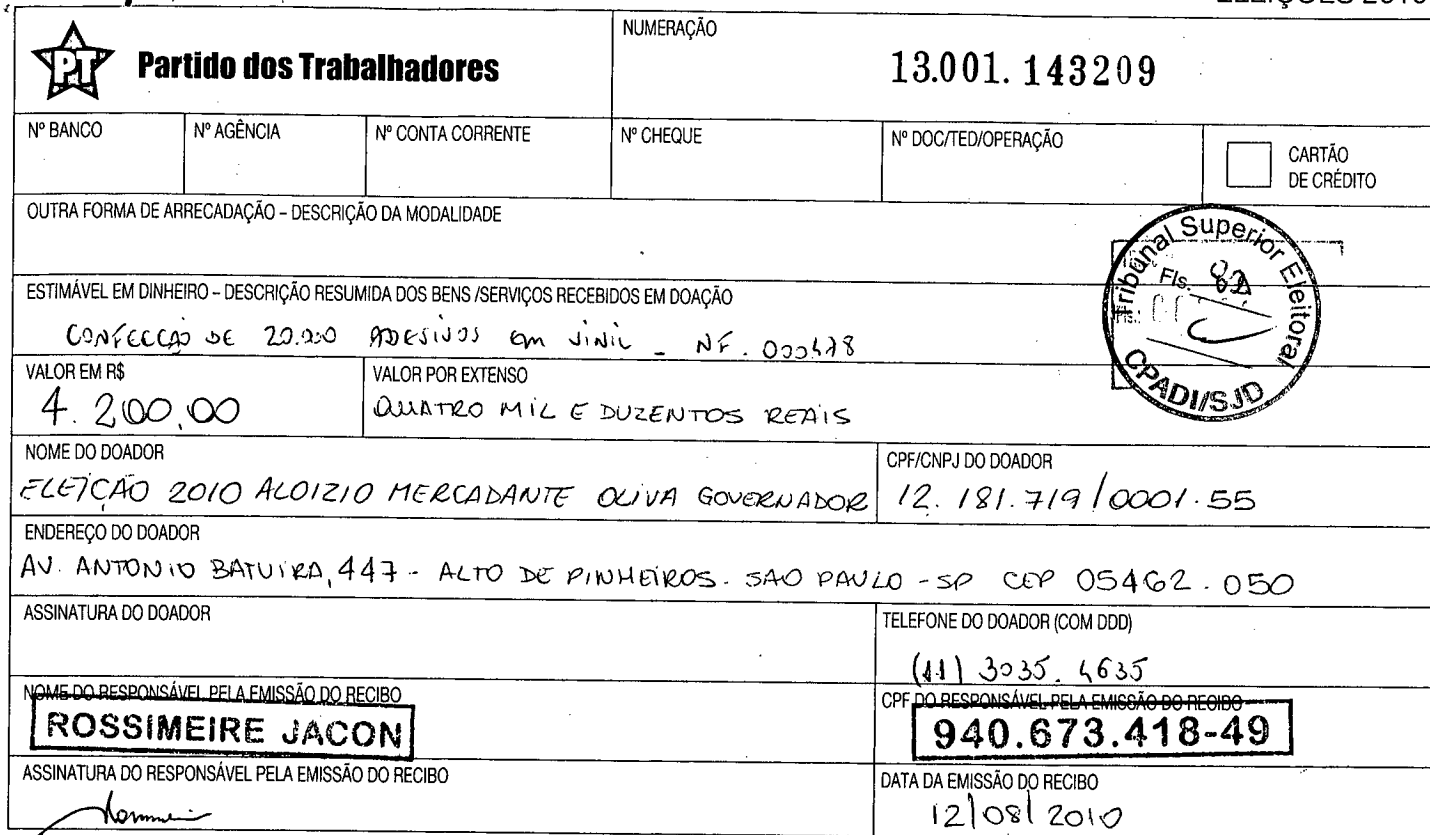 ELEIÇÕES 2010
PT Partido dos Trabalhadores
NUMERAÇÃO
13.001. 143209
Nº BANCO
Nº AGÊNCIA
Nº CONTA CORRENTE
Nº CHEQUE
Nº DOC/TED/OPERAÇÃO
CARTÃO
DE CRÉDITO
OUTRA FORMA DE ARRECADAÇÃO – DESCRIÇÃO DA MODALIDADE
Tribunal Superior Eleitoral
Fls.
CPADI/SJD
ESTIMÁVEL EM DINHEIRO – DESCRIÇÃO RESUMIDA DOS BENS /SERVIÇOS RECEBIDOS EM DOAÇÃO
CONFECÇÃO DE 20.000 ADESIVOS EM VINIL - NF.
VALOR EM R$
4.200,00
VALOR POR EXTENSO
QUATRO MIL E DUZENTOS REAIS
NOME DO DOADOR
ELEIÇÃO 2010 ALOIZIO MERCADANTE OLIVA GOVERNADOR
CPF/CNPJ DO DOADOR
12.181.719/0001.55
ENDEREÇO DO DOADOR
AV. ANTONIO BATUIRA, 447 - ALTO DE PINHEIROS. SAO PAULO - SP CEP 05462.050
ASSINATURA DO DOADOR
TELEFONE DO DOADOR (COM DDD)
(11) 3035.4635
NOME DO RESPONSÁVEL PELA EMISSÃO DO RECIBO
ROSSIMEIRE JACON
CPF DO RESPONSÁVEL PELA EMISSÃO DO RECIBO
940.673.418-49
ASSINATURA DO RESPONSÁVEL PELA EMISSÃO DO RECIBO
DATA DA EMISSÃO DO RECIBO
12/08/2010